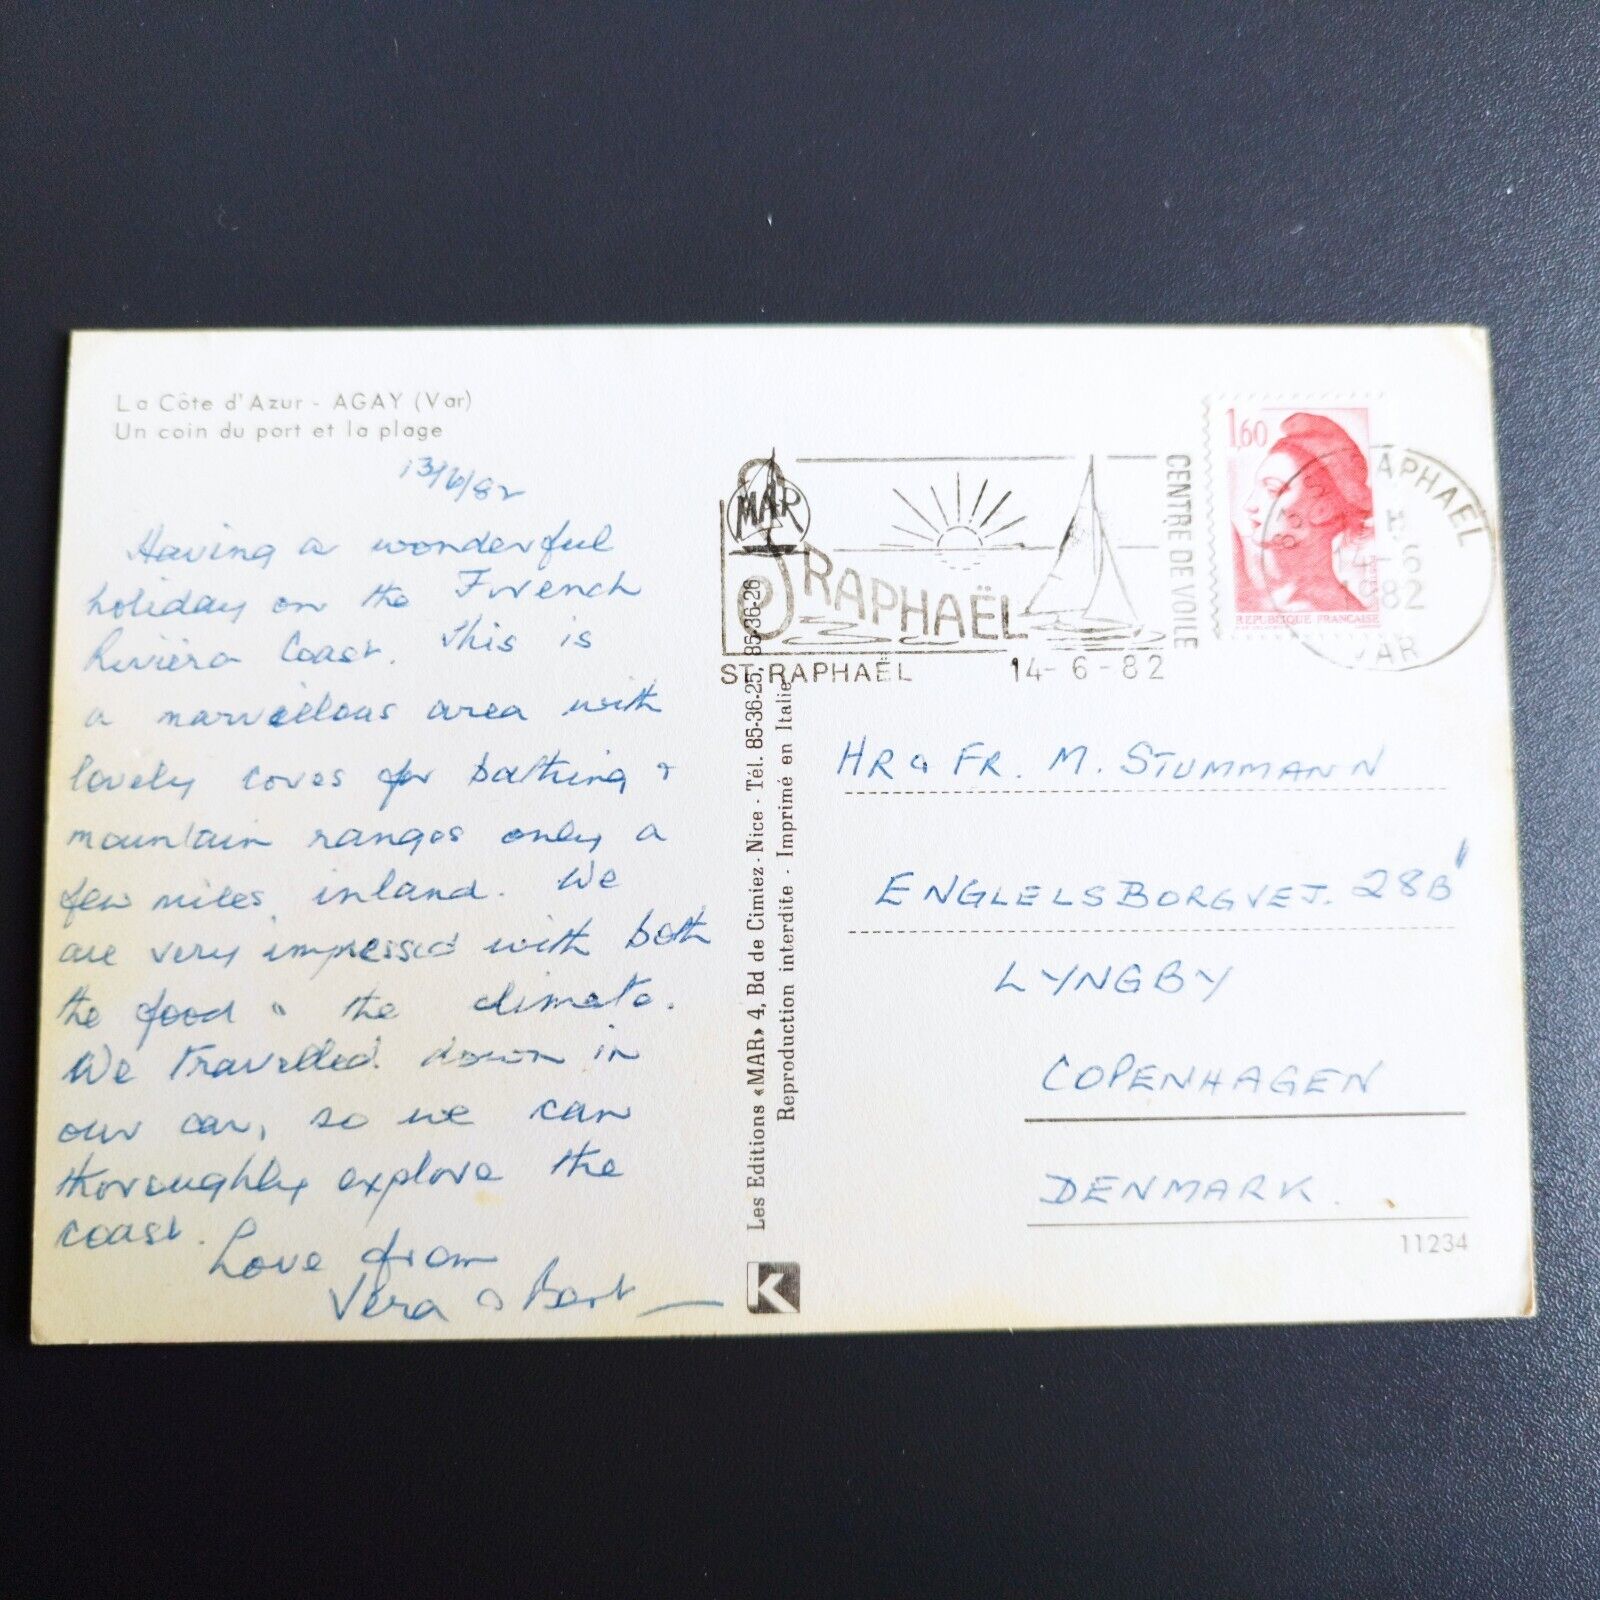 La Côte d'Azur - AGAY (Var)
Un coin du port et la plage
13/6/82
Having a wonderful
holiday on the French
Riviera Coast. This is
a marvellous area with
lovely coves for bathing &
mountain ranges only a
few miles inland. We
are very impressed with both
the food & the climate.
We travelled down in
our car, so we can
thoroughly explore the
coast.
Love from
Vera & Bert
Les Editions «MAR» 4, Bd de Cimiez - Nice - Tél. 85-36-25, 85-36-26
Reproduction interdite - Imprimé en Italie
K
MAR
ST RAPHAËL
CENTRE DE VOILE
ST-RAPHAËL 14-6-82
1,60
REPUBLIQUE FRANÇAISE
83 ST RAPHAEL
14-6
1982
VAR
HR & FR. M. STUMMANN
ENGLELSBORGVEJ. 28B'
LYNGBY
COPENHAGEN
DENMARK.
11234